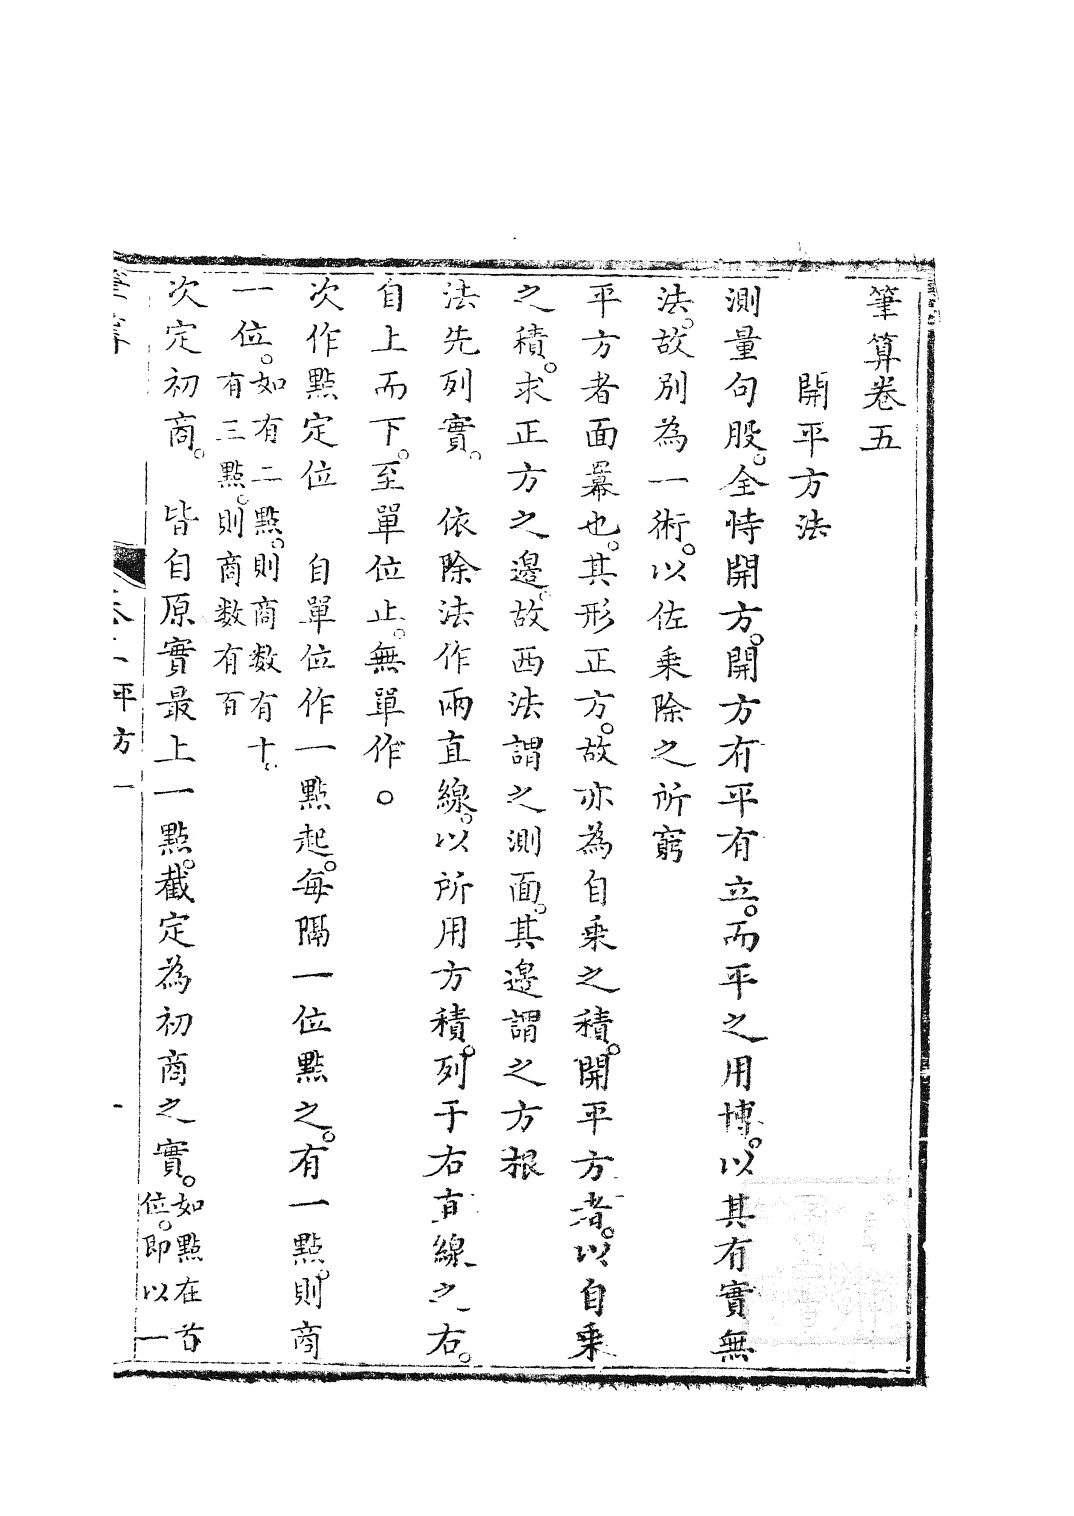 筆算卷五
開平方法
測量句股。全恃開方。開方有平有立。而平之用博。以其有實無
法。故別為一術。以佐乘除之所窮
平方者面冪也。其形正方。故亦為自乘之積。開平方者。以自乘
之積。求正方之邊。故西法謂之測面。其邊謂之方根
法先列實。　依除法作兩直線。以所用方積。列于右直線之右。
自上而下。至單位止。無單作○
次作點定位　自單位作一點起。每隔一位點之。有一點。則商
一位。如有二點。則商數有十。
有三點。則商數有百
次定初商。　皆自原實最上一點。截定為初商之實。如點在首
位。即以一
筆算
平方一